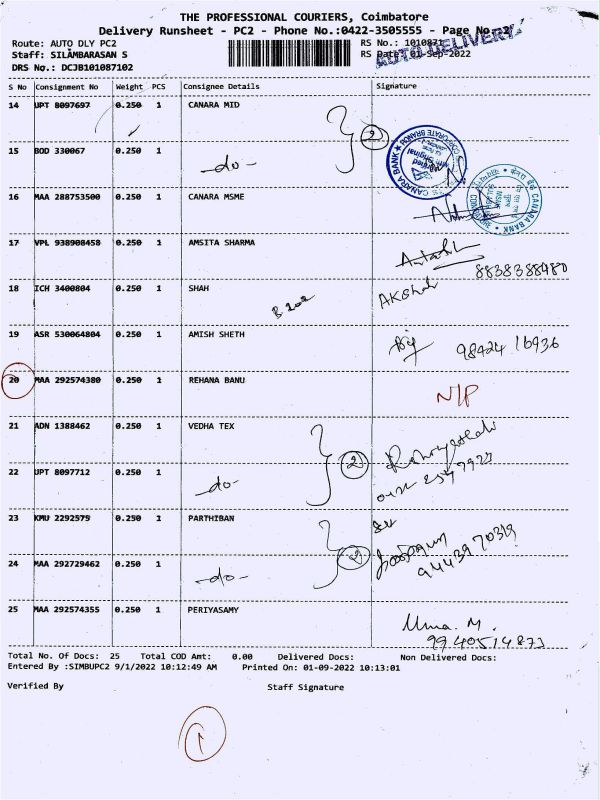 THE PROFESSIONAL COURIERS, Coimbatore
Delivery Runsheet - PC2 - Phone No.:0422-3505555 - Page No. 2
Route: AUTO DLY PC2 RS No.: 1010871
Staff: SILAMBARASAN S RS Date: 01-Sep-2022
DRS No.: DCJB101087102
AUTO DELIVERY
S No Consignment No Weight PCS Consignee Details Signature
14 UPT 8097697 0.250 1 CANARA MID
2
15 BOD 330067 0.250 1 -do-
CANARA BANK ★ CORPORATE BRANCH
16 MAA 288753500 0.250 1 CANARA MSME
CANARA BANK
17 VPL 938908458 0.250 1 AMSITA SHARMA
8838388480
18 ICH 3400804 0.250 1 SHAH B 202 AKshah
19 ASR 530064804 0.250 1 AMISH SHETH 98424 16936
20 MAA 292574380 0.250 1 REHANA BANU N/P
21 ADN 1388462 0.250 1 VEDHA TEX
2
22 UPT 8097712 0.250 1 -do- 0422 2547927
23 KMU 2292579 0.250 1 PARTHIBAN
2
24 MAA 292729462 0.250 1 -do- 9443970319
25 MAA 292574355 0.250 1 PERIYASAMY Uma. M.
9940514873
Total No. Of Docs: 25 Total COD Amt: 0.00 Delivered Docs: Non Delivered Docs:
Entered By :SIMBUPC2 9/1/2022 10:12:49 AM Printed On: 01-09-2022 10:13:01
Verified By Staff Signature
1